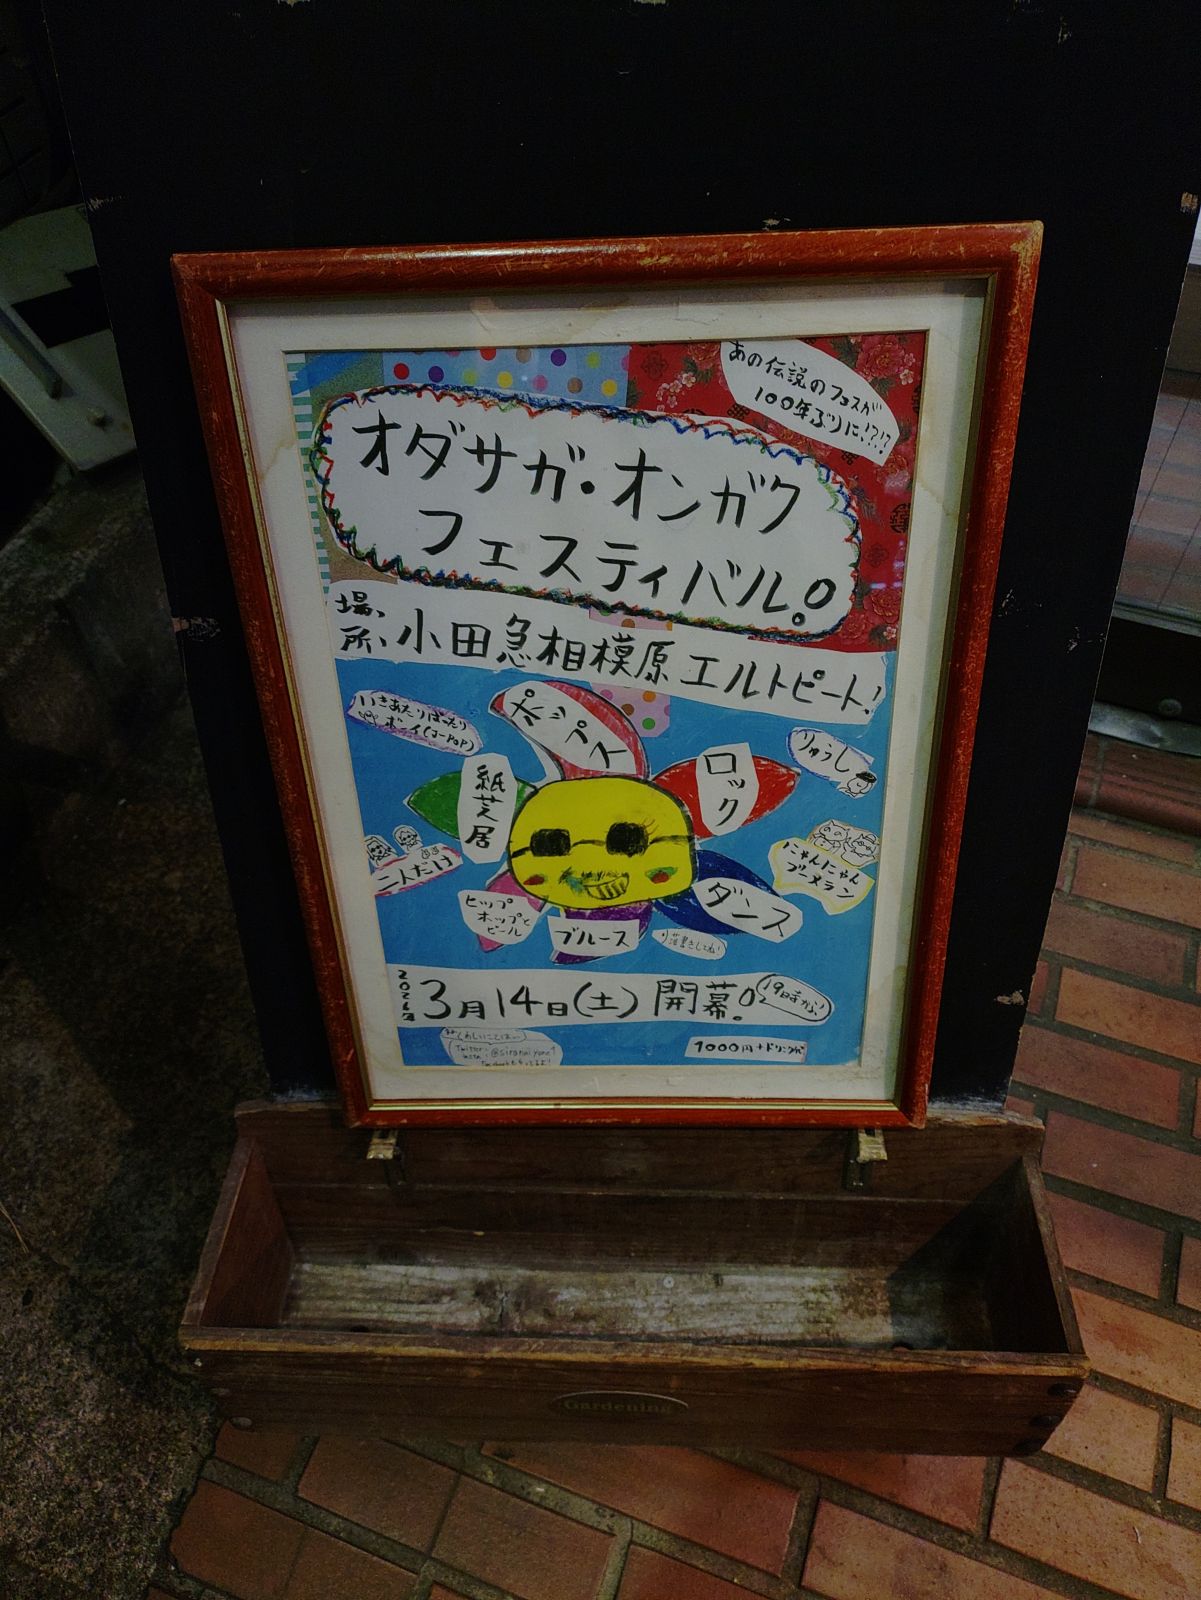 あの伝説のフェスが
100年ぶりに!?!?
オダサガ・オンガク
フェスティバル。
場所、小田急相模原エルトピート!
いきあたりばったり
ボーイ(J-POP)
ポップス
ロック
りゅうし
紙芝居
二人だけ
にゃんにゃん
ブーメラン
ヒップ
ホップと
ビール
ブルース
ダンス
落書きしてね!
2026年 3月14日(土) 開幕。
19時から!
くわしいことはー
Twitter
insta:@siranaiyone1
1000円+ドリンク代
Gardening